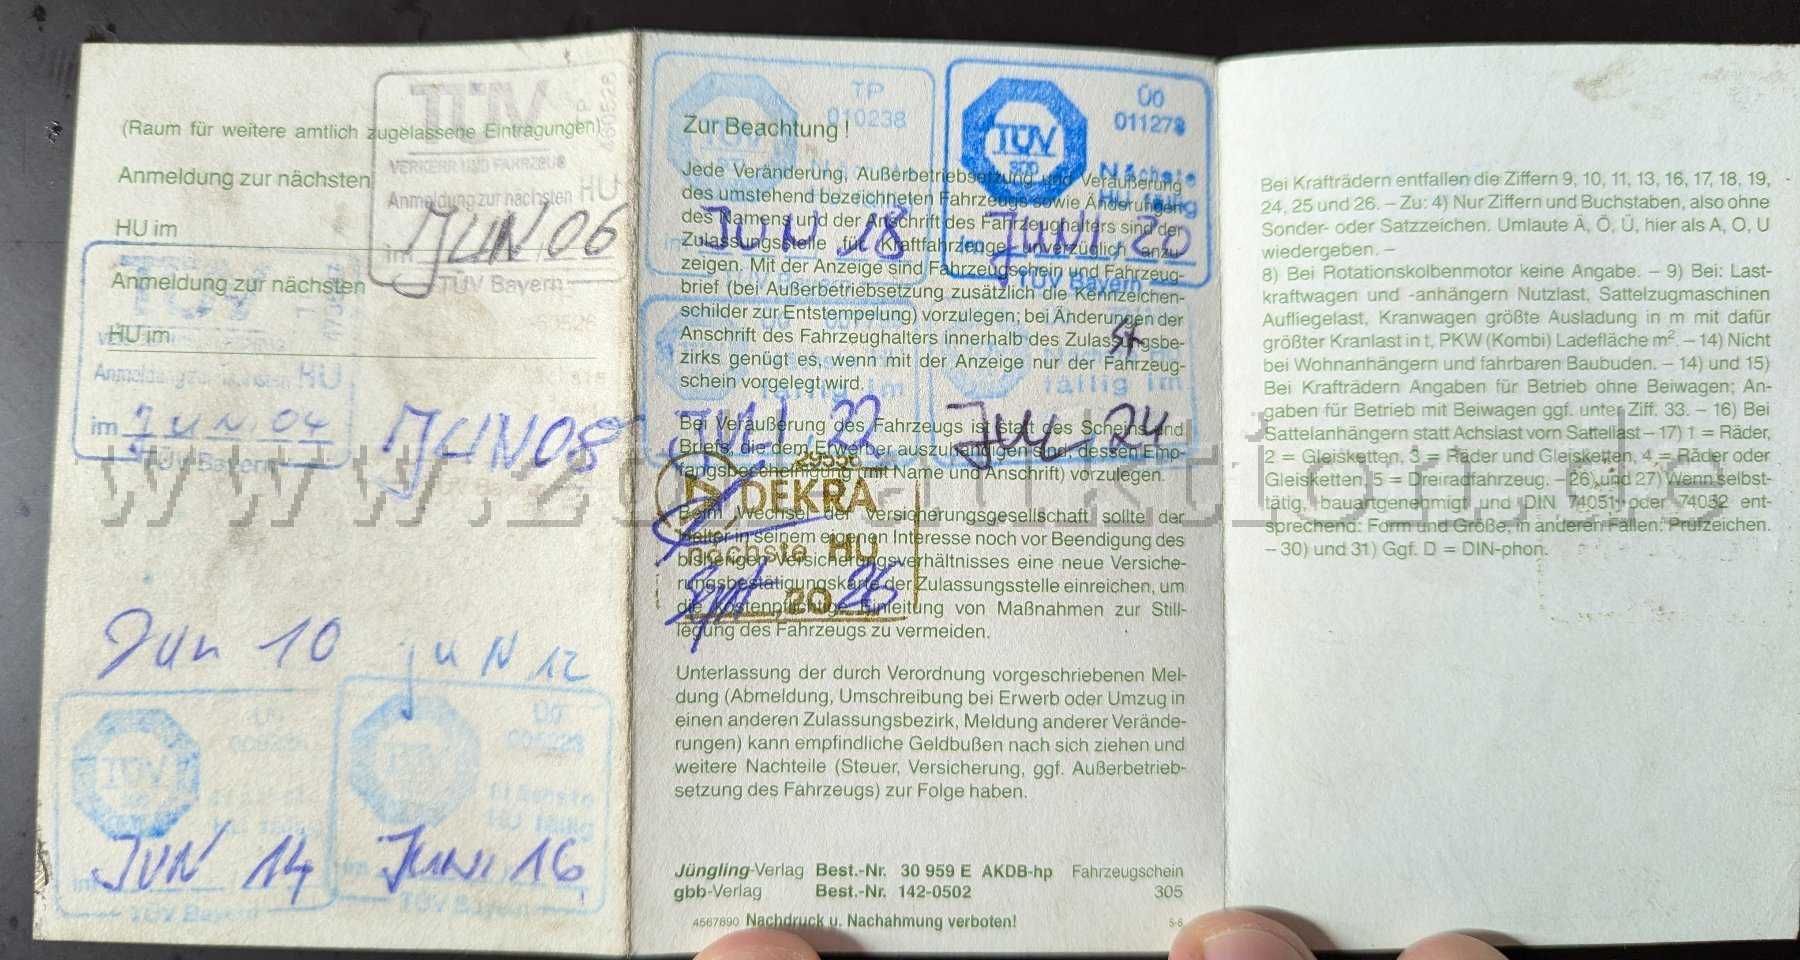 (Raum für weitere amtlich zugelassene Eintragungen)
Anmeldung zur nächsten
HU im
Anmeldung zur nächsten
HU im
TÜV
VERKEHR UND FAHRZEUG
Anmeldung zur nächsten HU
im JUN 06
TÜV Bayern
TÜV
Anmeldung zur nächsten HU
im JUN 04
TÜV Bayern
JUN 08
Jun 10
JUN 12
TÜV
JUN 14
TÜV Bayern
TÜV
Nächste
HU fällig
im JUNI 16
TÜV Bayern
TP
010238
TÜV
SÜD
im JUN 18
ÜO
011278
TÜV
SÜD
Nächste
HU fällig
im JUNI 20
TÜV Bayern
fällig im
JULI 22
fällig im
JUL 24
DEKRA
nächste HU
Sept 2026
Zur Beachtung !
Jede Veränderung, Außerbetriebsetzung und Veräußerung
des umstehend bezeichneten Fahrzeugs sowie Änderungen
des Namens und der Anschrift des Fahrzeughalters sind der
Zulassungsstelle für Kraftfahrzeuge unverzüglich anzu-
zeigen. Mit der Anzeige sind Fahrzeugschein und Fahrzeug-
brief (bei Außerbetriebsetzung zusätzlich die Kennzeichen-
schilder zur Entstempelung) vorzulegen; bei Änderungen der
Anschrift des Fahrzeughalters innerhalb des Zulassungsbe-
zirks genügt es, wenn mit der Anzeige nur der Fahrzeug-
schein vorgelegt wird.
Bei Veräußerung des Fahrzeugs ist statt des Scheins und
Briefs, die dem Erwerber auszuhändigen sind, dessen Emp-
fangsbescheinigung (mit Name und Anschrift) vorzulegen.
Beim Wechsel der Versicherungsgesellschaft sollte der
Halter in seinem eigenen Interesse noch vor Beendigung des
bisherigen Versicherungsverhältnisses eine neue Versiche-
rungsbestätigungskarte der Zulassungsstelle einreichen, um
die kostenpflichtige Einleitung von Maßnahmen zur Still-
legung des Fahrzeugs zu vermeiden.
Unterlassung der durch Verordnung vorgeschriebenen Mel-
dung (Abmeldung, Umschreibung bei Erwerb oder Umzug in
einen anderen Zulassungsbezirk, Meldung anderer Verände-
rungen) kann empfindliche Geldbußen nach sich ziehen und
weitere Nachteile (Steuer, Versicherung, ggf. Außerbetrieb-
setzung des Fahrzeugs) zur Folge haben.
Jüngling-Verlag Best.-Nr. 30 959 E AKDB-hp Fahrzeugschein
gbb-Verlag Best.-Nr. 142-0502 305
4567890 Nachdruck u. Nachahmung verboten! 5-6
Bei Krafträdern entfallen die Ziffern 9, 10, 11, 13, 16, 17, 18, 19,
24, 25 und 26. – Zu: 4) Nur Ziffern und Buchstaben, also ohne
Sonder- oder Satzzeichen. Umlaute Ä, Ö, Ü, hier als A, O, U
wiedergeben. –
8) Bei Rotationskolbenmotor keine Angabe. – 9) Bei: Last-
kraftwagen und -anhängern Nutzlast, Sattelzugmaschinen
Aufliegelast, Kranwagen größte Ausladung in m mit dafür
größter Kranlast in t, PKW (Kombi) Ladefläche m². – 14) Nicht
bei Wohnanhängern und fahrbaren Baubuden. – 14) und 15)
Bei Krafträdern Angaben für Betrieb ohne Beiwagen; An-
gaben für Betrieb mit Beiwagen ggf. unter Ziff. 33. – 16) Bei
Sattelanhängern statt Achslast vorn Sattellast – 17) 1 = Räder,
2 = Gleisketten, 3 = Räder und Gleisketten, 4 = Räder oder
Gleisketten, 5 = Dreiradfahrzeug. – 26) und 27) Wenn selbst-
tätig, bauartgenehmigt und DIN 74051 oder 74052 ent-
sprechend: Form und Größe, in anderen Fällen: Prüfzeichen.
– 30) und 31) Ggf. D = DIN-phon.